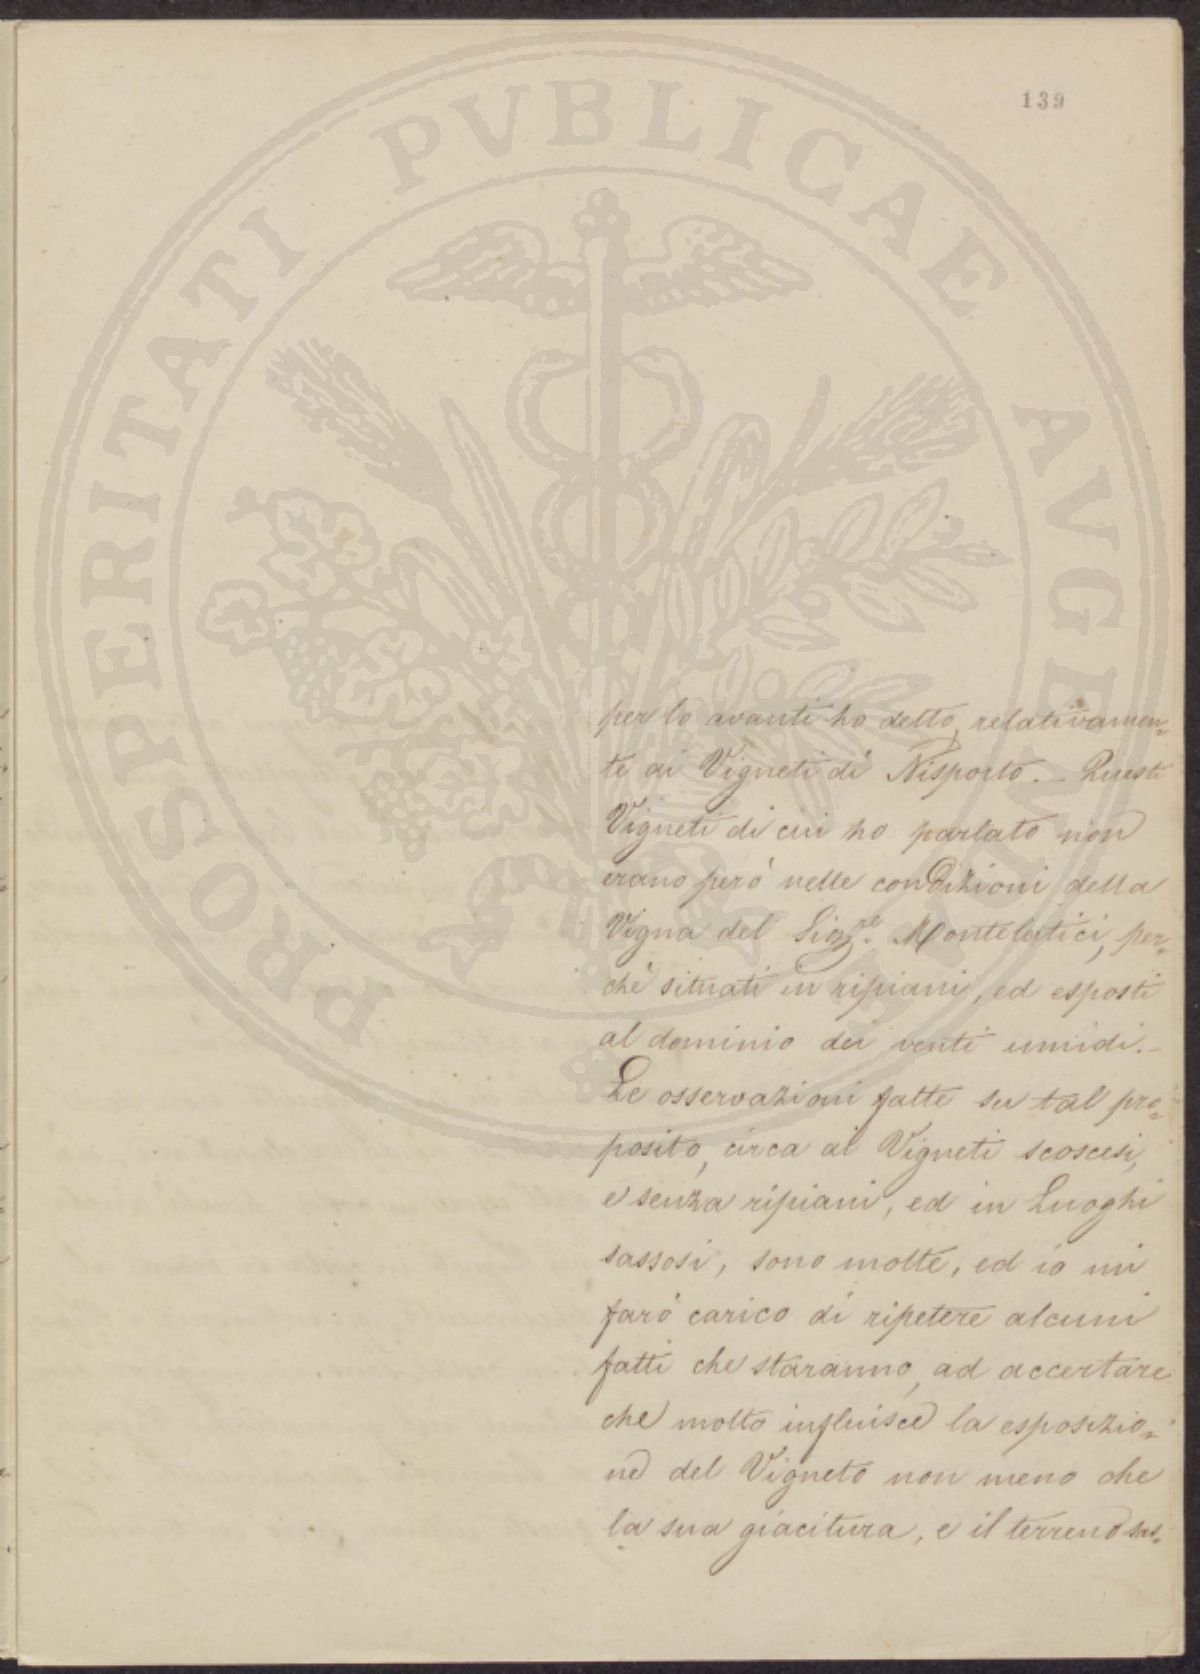 139
PROSPERITATI PVBLICAE AVGENDAE
per lo avanti ho detto, relativamen=
te ai Vigneti di Nisporto. _ Questi
Vigneti di cui ho parlato non
erano però nelle condizioni della
Vigna del Sig.re Montelatici, per=
chè situati in ripiani, ed esposti
al dominio dei venti umidi. _
Le osservazioni fatte su tal pro=
posito, circa ai Vigneti scoscesi,
e senza ripiani, ed in Luoghi
sassosi, sono molte, ed io mi
farò carico di ripetere alcuni
fatti che staranno, ad accertare
che molto influisce la esposizio=
ne del Vigneto non meno che
la sua giacitura, e il terreno sas=